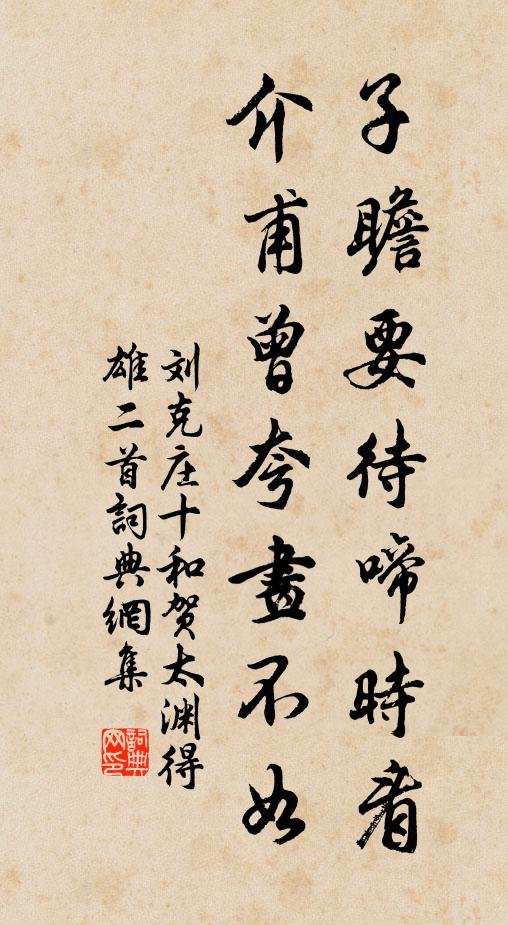 子瞻要待啼時看
介甫曾夸畫不如
刘克庄十和贺太渊得
雄二首詞典網集
詞典網印